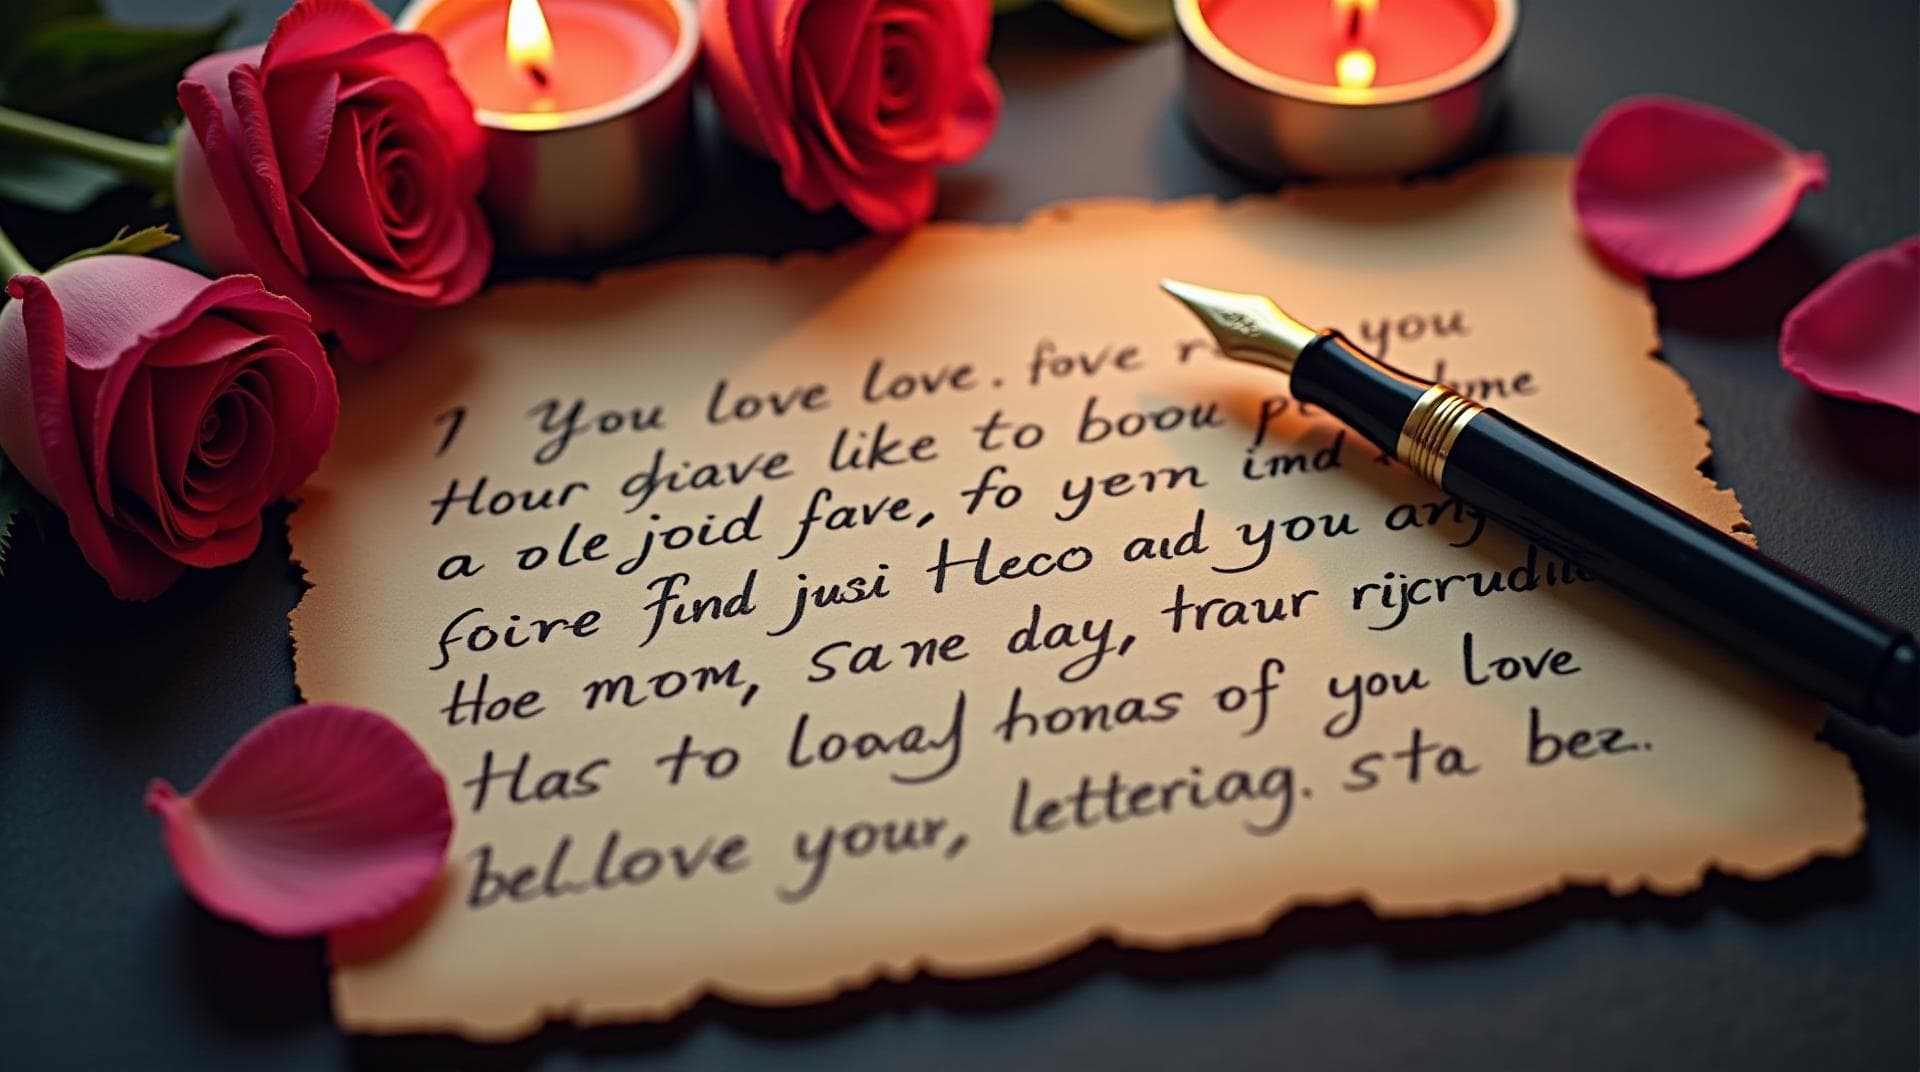 1 You love love. fove you
Hour like to boou
a ole joid fave, fo yem imd
foire find jusi Heco aid you any
Hoe mom, sane day, traur
Has to honas of you love
bellove your, letteriag. sta bez.